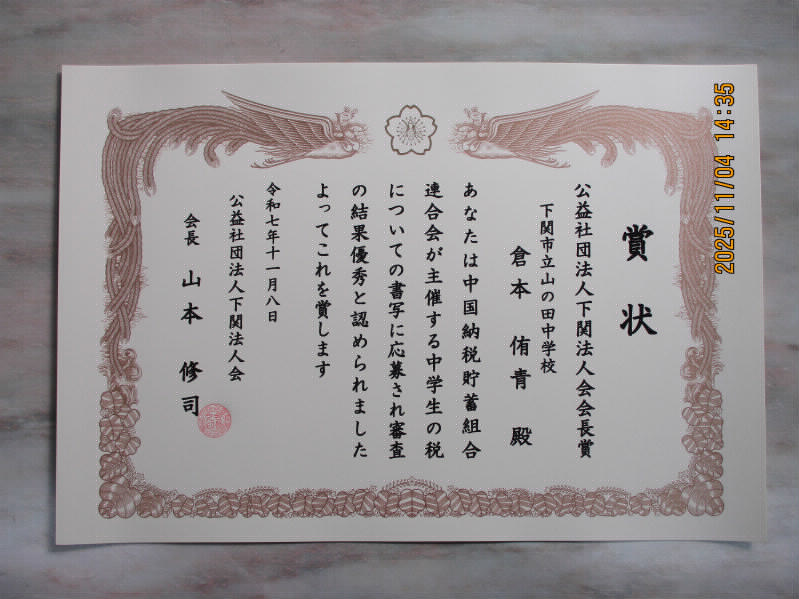 賞状
公益社団法人下関法人会会長賞
下関市立山の田中学校
倉本 侑青 殿
あなたは中国納税貯蓄組合
連合会が主催する中学生の税
についての書写に応募され審査
の結果優秀と認められました
よってこれを賞します
令和七年十一月八日
公益社団法人下関法人会
会長 山本 修司
2025/11/04 14:35